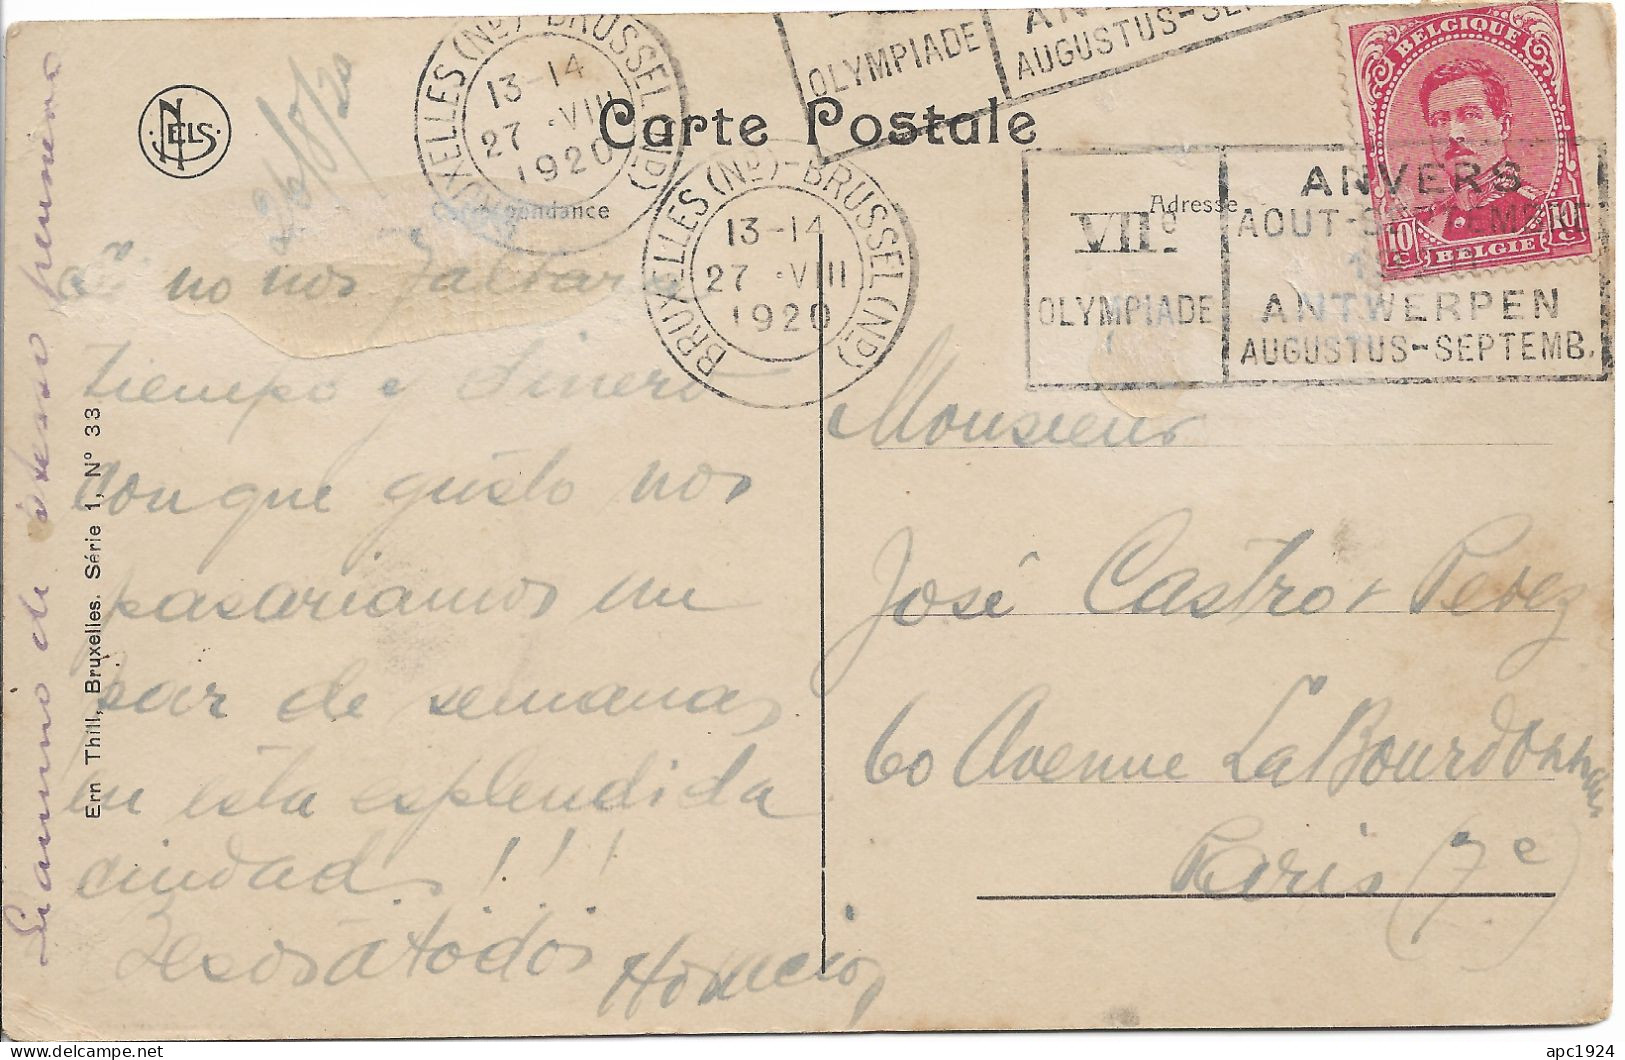 BRUXELLES (Nd)-BRUSSEL (ND)
13-14
27 ·VIII
1920
OLYMPIADE
AUGUSTUS-SE
BELGIQUE
10 c. 10 c.
BELGIE
NELS
26/8/20
Carte Postale
Correspondance
Adresse
BRUXELLES (Nd)-BRUSSEL (ND)
13-14
27 ·VIII
1920
VIIe
OLYMPIADE
ANVERS
AOUT-SEPTEMBRE
ANTWERPEN
AUGUSTUS-SEPTEMB.
Si no nos faltara
tiempo y dinero
con que gusto nos
pasariamos un
par de semanas
en esta esplendida
ciudad!!!
Besos á todos
Horacio
Ern Thill, Bruxelles. Série 1, Nº 33
Monsieur
José Castro Perez
60 Avenue La Bourdonnais
Paris (7e)
apc1924